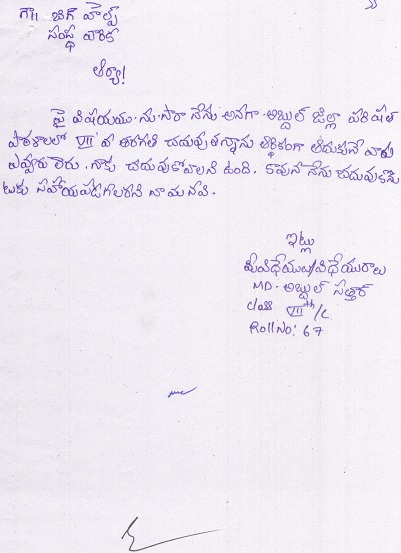 గౌ|| బిగ్ హెల్ప్
సంస్థ వారికి
ఆర్యా!
పై విషయము.ను.సారా నేను అనగా.అబ్దుల్ జిల్లా పరిషత్
పాఠశాలలో VIII వ తరగతి చదువుతున్నాను ఆర్థికంగా ఆదుకునే వారు
ఎవ్వరు లేరు. నాకు చదువుకోవాలని ఉంది. కావున నేను చదువుకొనే
టకు సహాయపడగలరని నా మనవి.
ఇట్లు
మీవిధేయుడు/విధేయురాలు
MD. అబ్దుల్ సత్తార్
class VIII th/c
Roll No: 67